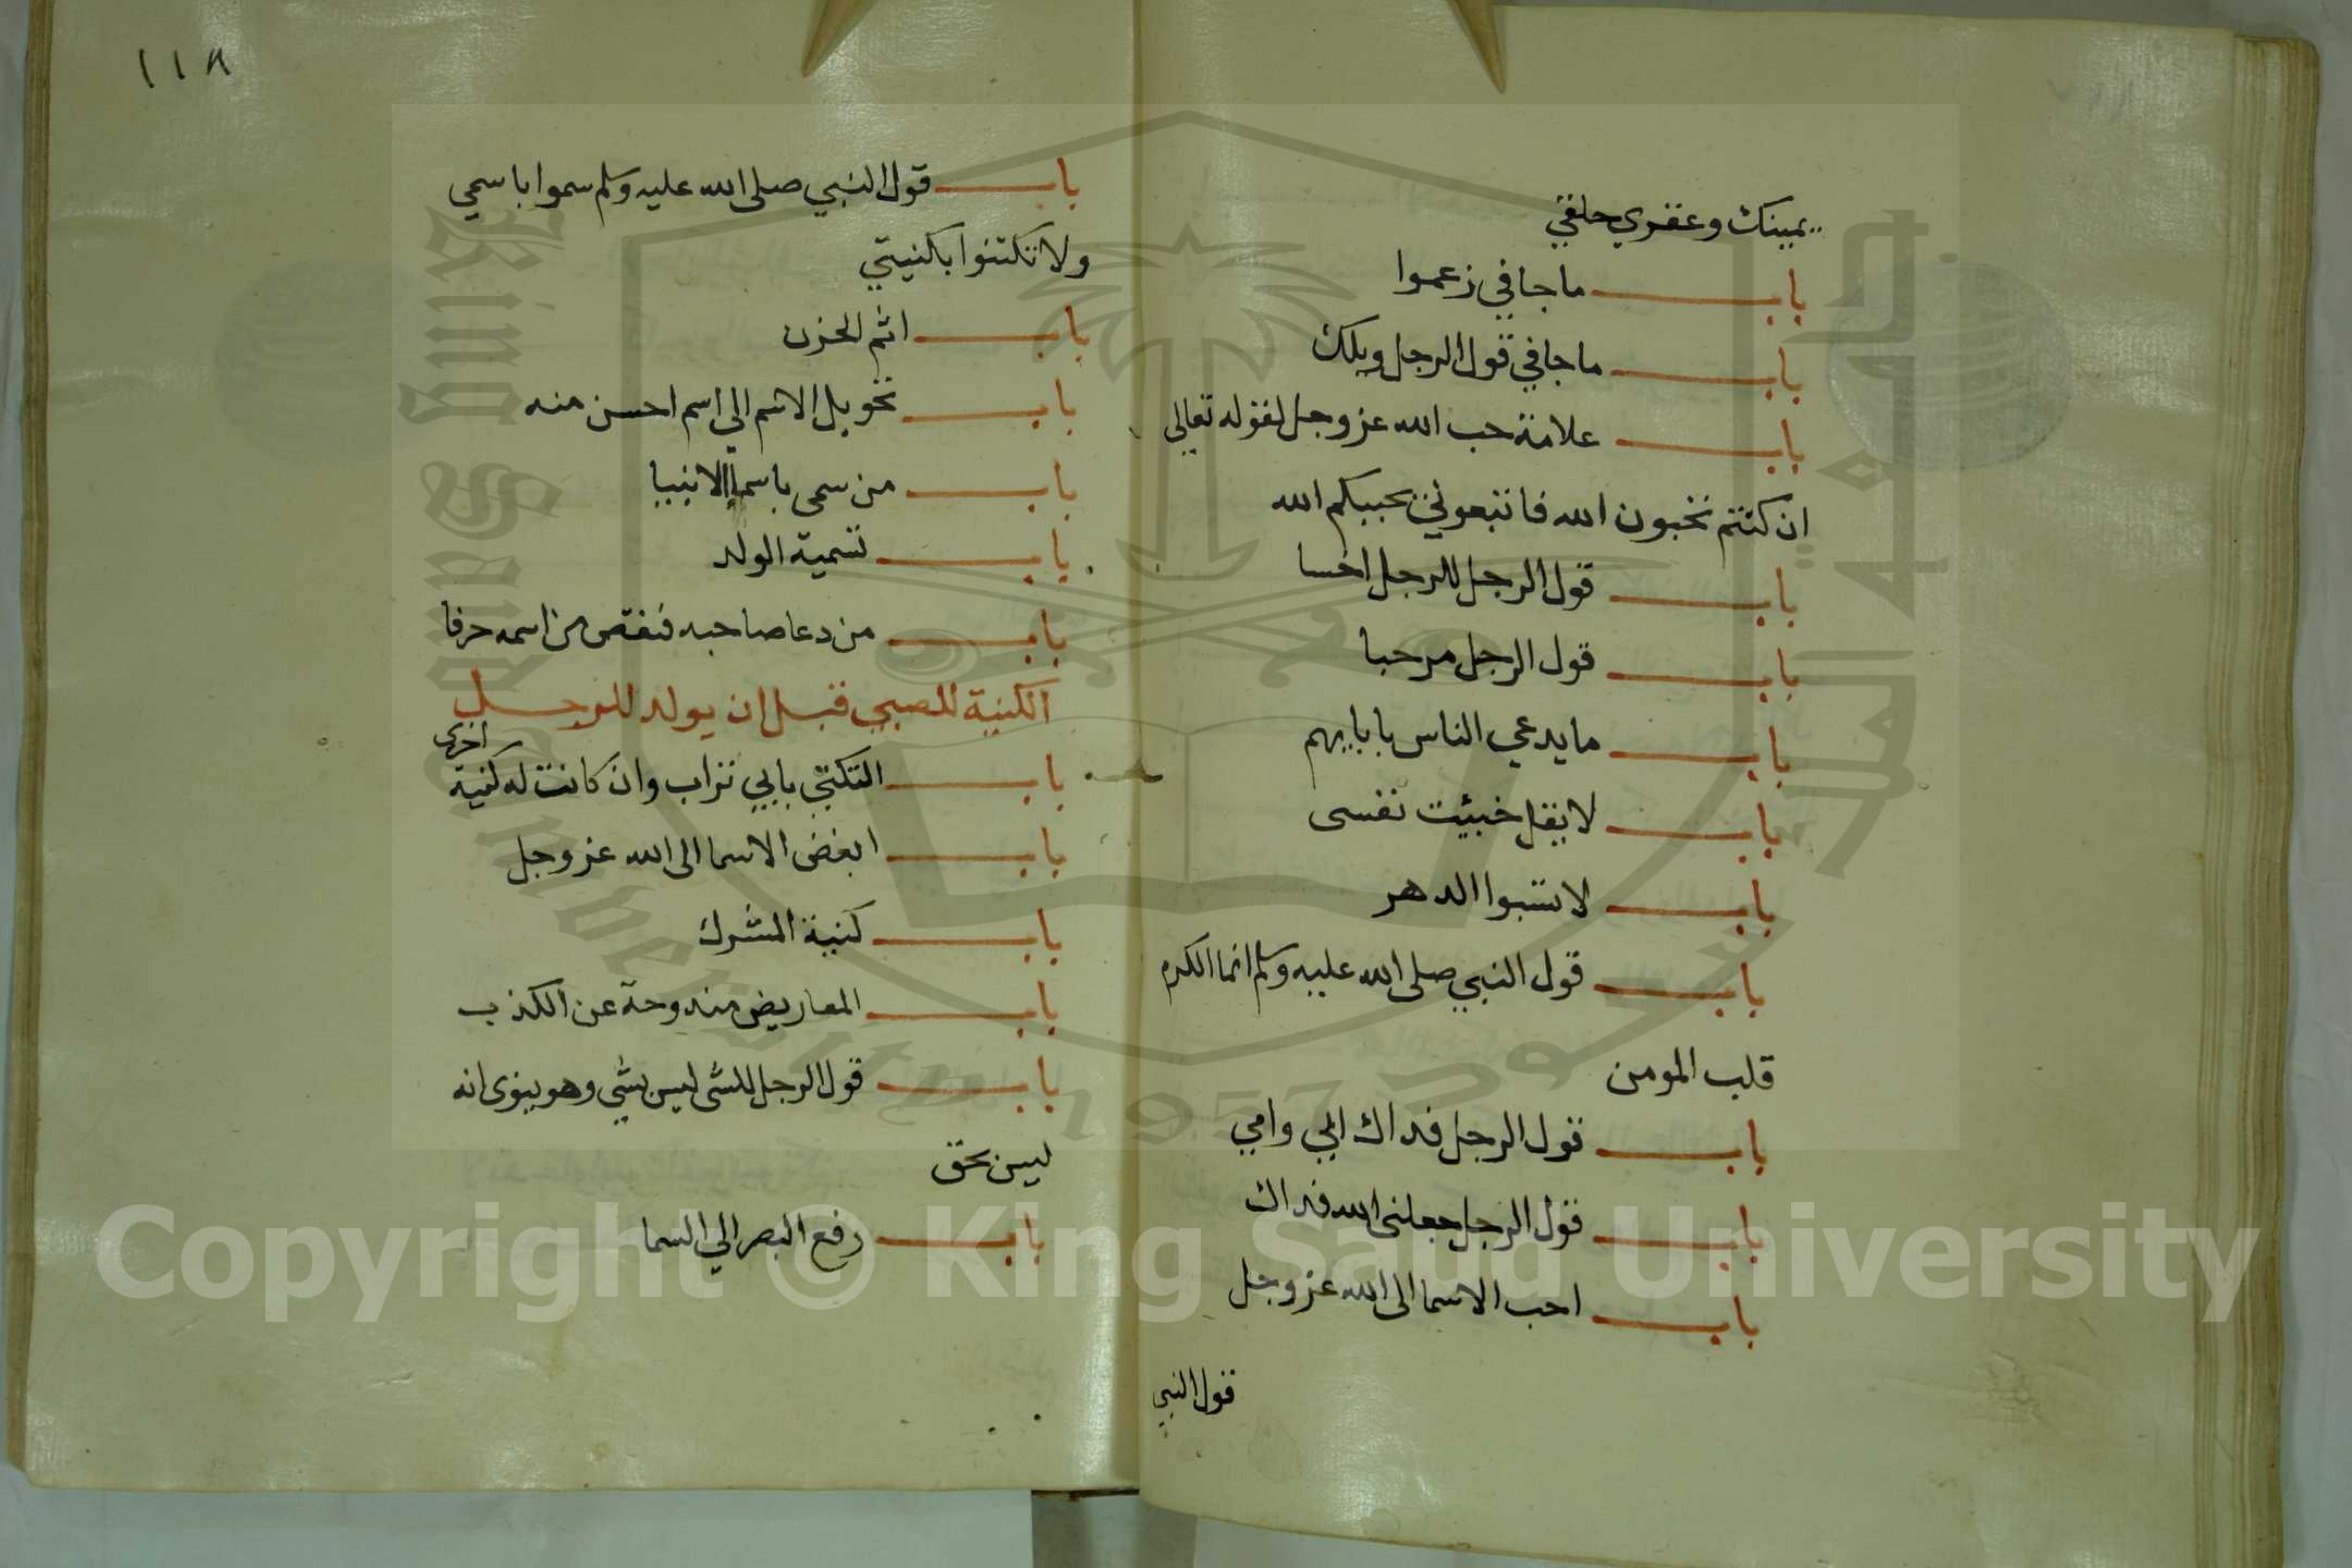 يمينك وعقري حلقي
باب ما جا في زعموا
باب ما جا في قول الرجل ويلك
باب علامة حب الله عز وجل لقوله تعالى
ان كنتم تحبون الله فاتبعوني يحببكم الله
باب قول الرجل للرجل اخسا
باب قول الرجل مرحبا
باب ما يدعي الناس بابايهم
باب لا يقل خبيثت نفسى
باب لا تسبوا الدهر
باب قول النبي صلى الله عليه وسلم انما الكرم
قلب المومن
باب قول الرجل فداك ابي وامي
باب قول الرجل جعلنى الله فداك
باب احب الاسما الى الله عز وجل
قول النبي
١١٨
باب قول النبي صلى الله عليه وسلم سموا باسمي
ولا تكتنوا بكنيتي
باب اثم الحزن
باب تحويل الاسم الي اسم احسن منه
باب من سمى باسما الانبيا
باب تسمية الولد
باب من دعا صاحبه فنقص من اسمه حرفا
الكنية للصبي قبل ان يولد للرجل
باب التكني بابي تراب وان كانت له كنية اخرى
باب ابغض الاسما الى الله عز وجل
باب كنية المشرك
باب المعاريض مندوحة عن الكذب
باب قول الرجل للشى ليس بشي وهو ينوى انه
ليس بحق
باب رفع البصر الي السما
Copyright © King Saud University
King Saud University
جامعة الملك سعود
1957